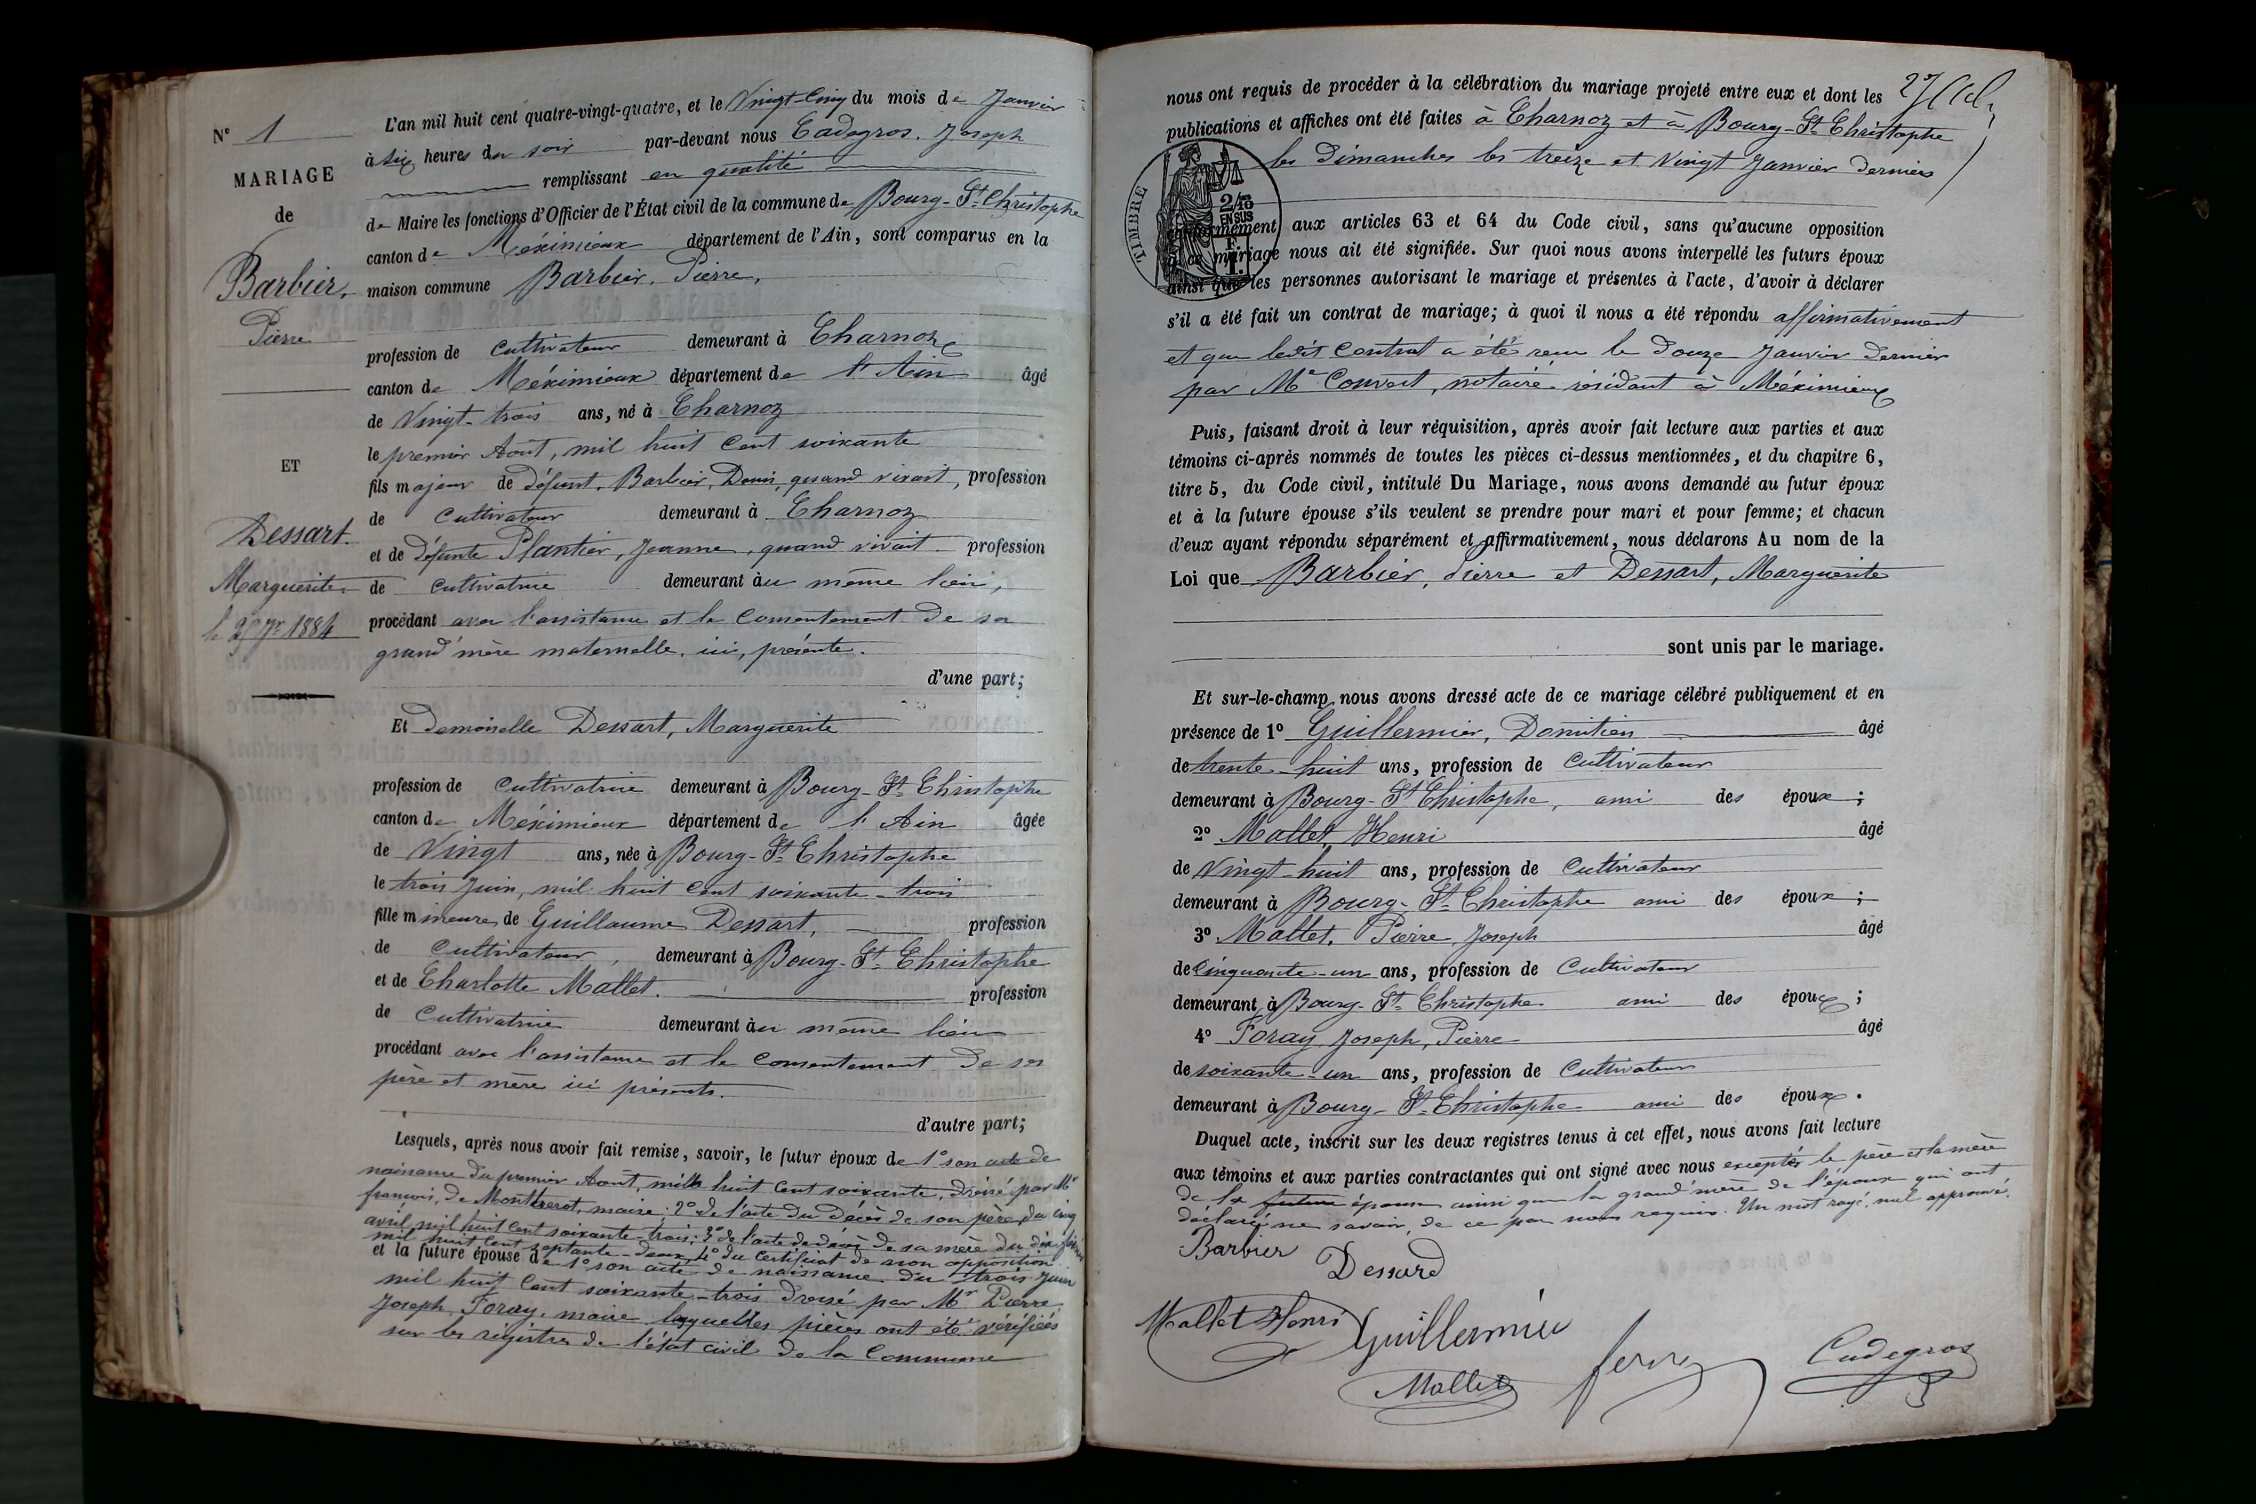 N° 1
MARIAGE
de
Barbier,
Pierre
ET
Dessart.
Marguerite
le 25 Jr 1884
L'an mil huit cent quatre-vingt-quatre, et le Vingt-Cinq du mois de Janvier
à six heures du soir par-devant nous Cadegros, Joseph
remplissant en qualité
de Maire les fonctions d'Officier de l'État civil de la commune de Bourg-St-Christophe
canton de Méximieux département de l'Ain, sont comparus en la
maison commune Barbier, Pierre,
profession de Cultivateur demeurant à Charnoz
canton de Méximieux département de l'Ain âgé
de Vingt-trois ans, né à Charnoz
le premier Août, mil huit Cent soixante
fils majeur de défunt, Barbier, Denis, quand vivait, profession
de Cultivateur demeurant à Charnoz
et de défunte Plantier, Jeanne, quand vivait profession
de Cultivatrice demeurant au même lieu,
procédant avec l'assistance et le Consentement de sa
grand'mère maternelle, ici, présente.
d'une part;
Et demoiselle Dessart, Marguerite
profession de Cultivatrice demeurant à Bourg-St-Christophe
canton de Méximieux département de l'Ain âgée
de Vingt ans, née à Bourg-St-Christophe
le trois Juin, mil huit Cent soixante-trois
fille mineure de Guillaume Dessart, profession
de Cultivateur, demeurant à Bourg-St-Christophe
et de Charlotte Mallet. profession
de Cultivatrice demeurant au même lieu
procédant avec l'assistance et le Consentement de ses
père et mère ici présents.
d'autre part;
Lesquels, après nous avoir fait remise, savoir, le futur époux de 1° son acte de
naissance du premier Août, mille huit Cent soixante, dressé par Mr
françois, de Montherot, maire; 2° de l'acte du décès de son père, du cinq
avril mil huit Cent soixante-trois; 3° de l'acte de décès de sa mère du dix
mil huit Cent septante-deux, 4° du Certificat de non opposition
et la future épouse de 1° son acte de naissance du trois Juin
mil huit Cent soixante-trois dressé par Mr Pierre
Joseph Foray, maire lesquelles pièces ont été vérifiées
sur les régistres de l'état civil de la Commune
nous ont requis de procéder à la célébration du mariage projeté entre eux et dont les
publications et affiches ont été faites à Charnoz et à Bourg-St-Christophe
les Dimanches les treize et Vingt Janvier derniers
TIMBRE
2/10
EN SUS
conformément aux articles 63 et 64 du Code civil, sans qu'aucune opposition
à ce mariage nous ait été signifiée. Sur quoi nous avons interpellé les futurs époux
ainsi que les personnes autorisant le mariage et présentes à l'acte, d'avoir à déclarer
s'il a été fait un contrat de mariage; à quoi il nous a été répondu affirmativement
et que ledit Contrat a été reçu le Douze Janvier dernier
par Me Convert, notaire résidant à Méximieux
Puis, faisant droit à leur réquisition, après avoir fait lecture aux parties et aux
témoins ci-après nommés de toutes les pièces ci-dessus mentionnées, et du chapitre 6,
titre 5, du Code civil, intitulé Du Mariage, nous avons demandé au futur époux
et à la future épouse s'ils veulent se prendre pour mari et pour femme; et chacun
d'eux ayant répondu séparément et affirmativement, nous déclarons Au nom de la
Loi que Barbier, Pierre et Dessart, Marguerite
sont unis par le mariage.
Et sur-le-champ nous avons dressé acte de ce mariage célébré publiquement et en
présence de 1° Guillermier, Domitien âgé
de trente-huit ans, profession de Cultivateur
demeurant à Bourg-St-Christophe, ami des époux;
2° Mallet, Henri âgé
de Vingt-huit ans, profession de Cultivateur
demeurant à Bourg-St-Christophe ami des époux;
3° Mallet, Pierre Joseph âgé
de Cinquante-un ans, profession de Cultivateur
demeurant à Bourg-St-Christophe ami des époux;
4° Foray Joseph, Pierre âgé
de soixante-un ans, profession de Cultivateur
demeurant à Bourg-St-Christophe ami des époux.
Duquel acte, inscrit sur les deux registres tenus à cet effet, nous avons fait lecture
aux témoins et aux parties contractantes qui ont signé avec nous exceptés le père et la mère
de la future épouse ainsi que la grand'mère de l'époux qui ont
déclaré ne savoir, de ce par nous requis. Un mot rayé, nul approuvé.
Barbier
Dessard
Mallet Henri
Guillermier
Mallet
Cadegros